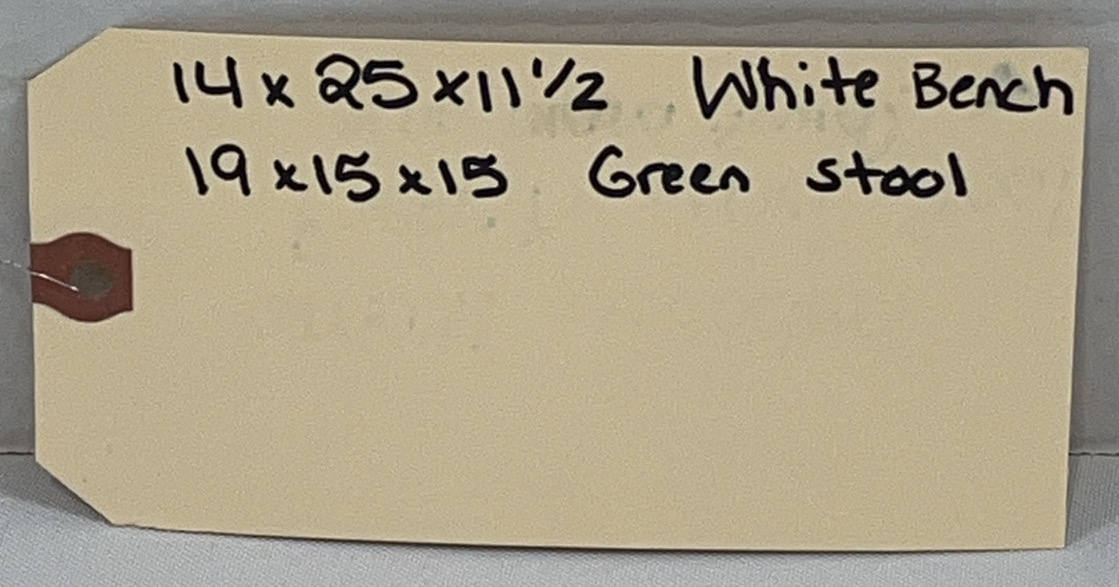 14 x 25 x 11 1/2 White Bench
19 x 15 x 15 Green stool